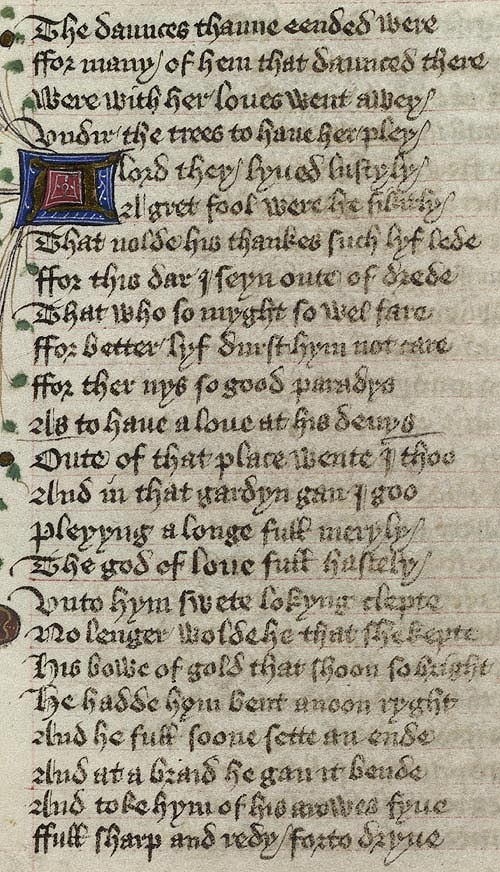 The daunces thanne eended were
ffor many / of hem that daunced there
Were with her loues went awey /
Vndir the trees to haue her pley /
A lord they / lyued lustyly /
A gret fool were he sikirly /
That nolde his thankes such lyf lede
ffor this dar I seyn oute of drede
That who so myght so wel fare
ffor better lyf durst hym not care
ffor ther nys so good paradys
As to haue a loue at his deuys
Oute of that place wente I thoo
And in that gardyn gan I goo
Pleyyng a longe full meryly /
The god of loue full hastely /
Vnto hym swete lokyng clepte
No lenger wolde he that she kepte
His bowe of gold that shoon so bright
He hadde hym bent anoon ryght
And he full soone sette an ende
And at a braid he gan it bende
And toke hym of his arowes fyue
ffull sharp and redy / forto dryue